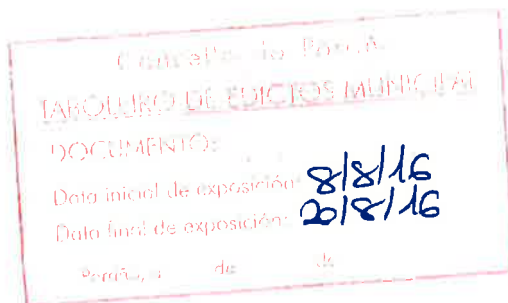 Concello do Porriño
TABOLEIRO DE EDICTOS MUNICIPAL
DOCUMENTO:
Data inicial de exposición: 8/8/16
Data final de exposición: 20/8/16
Porriño, a de de